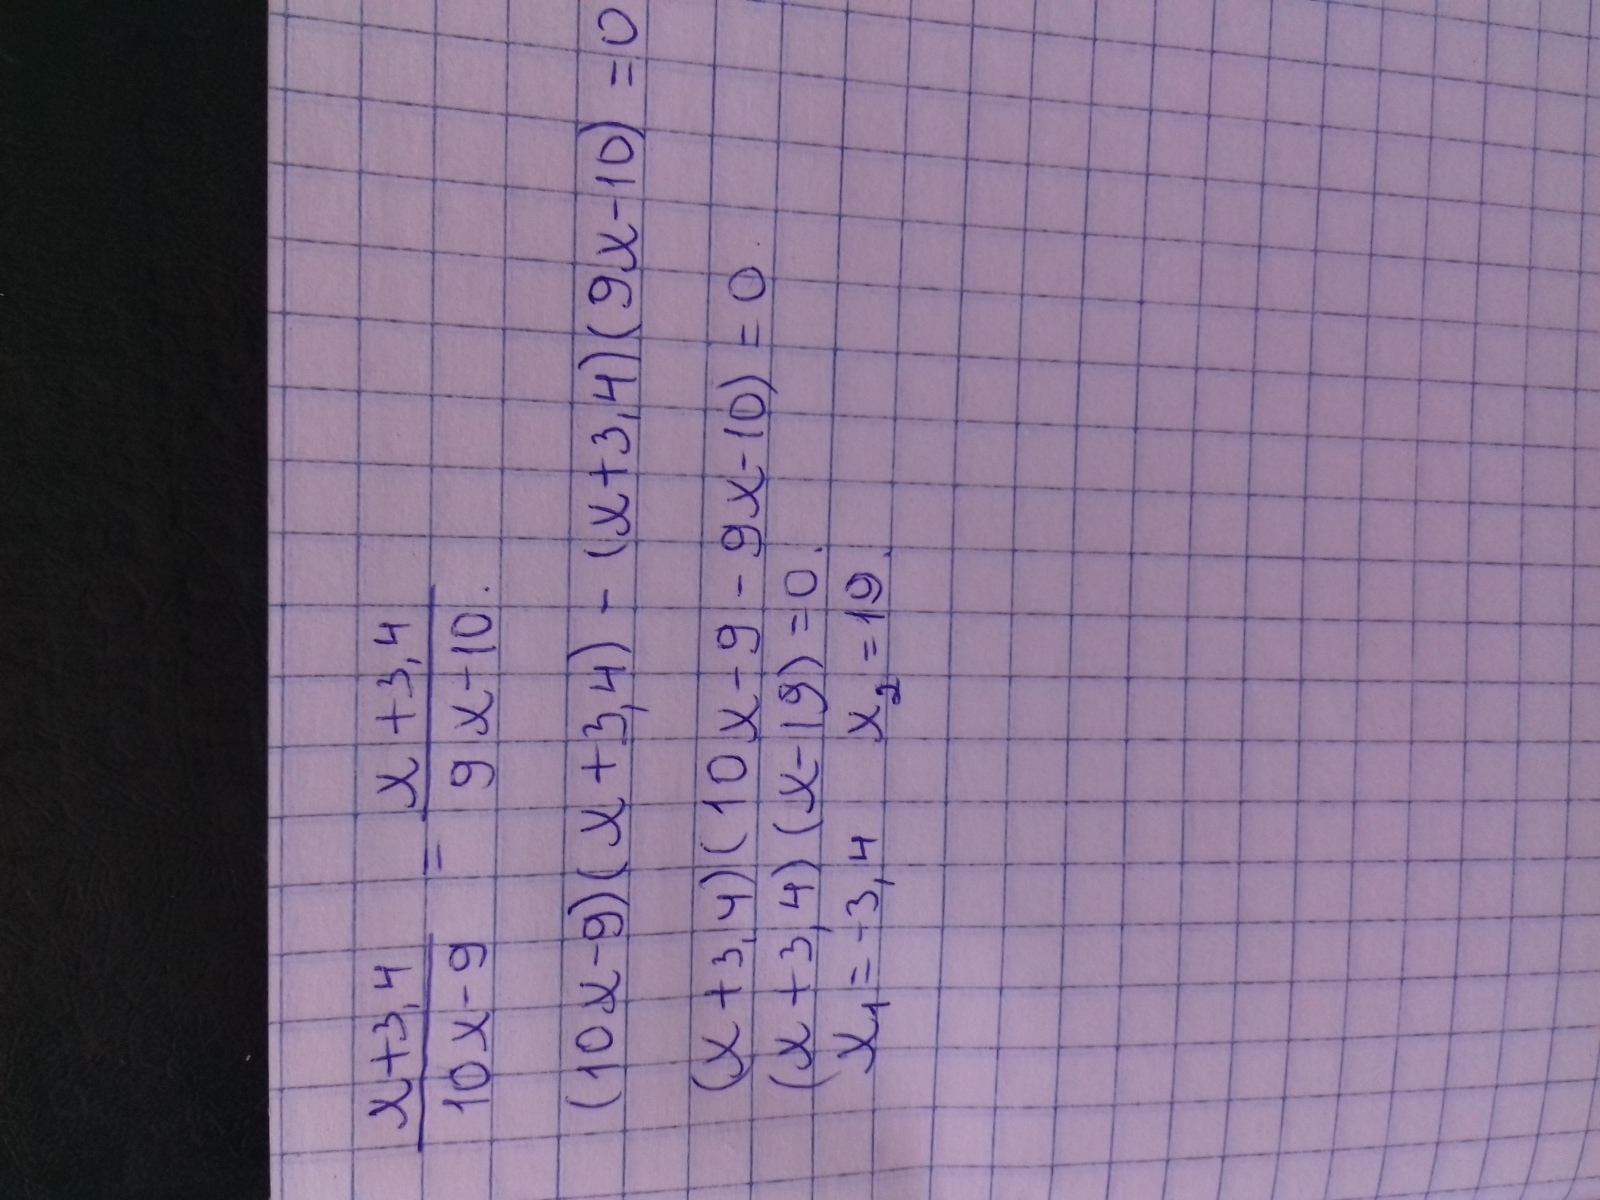 x+3,4 / 10x-9 = x+3,4 / 9x-10.
(10x-9)(x+3,4) - (x+3,4)(9x-10) =0
(x+3,4)(10x-9-9x-10) =0
(x+3,4)(x-19)=0.
x₁=-3,4 x₂=19.